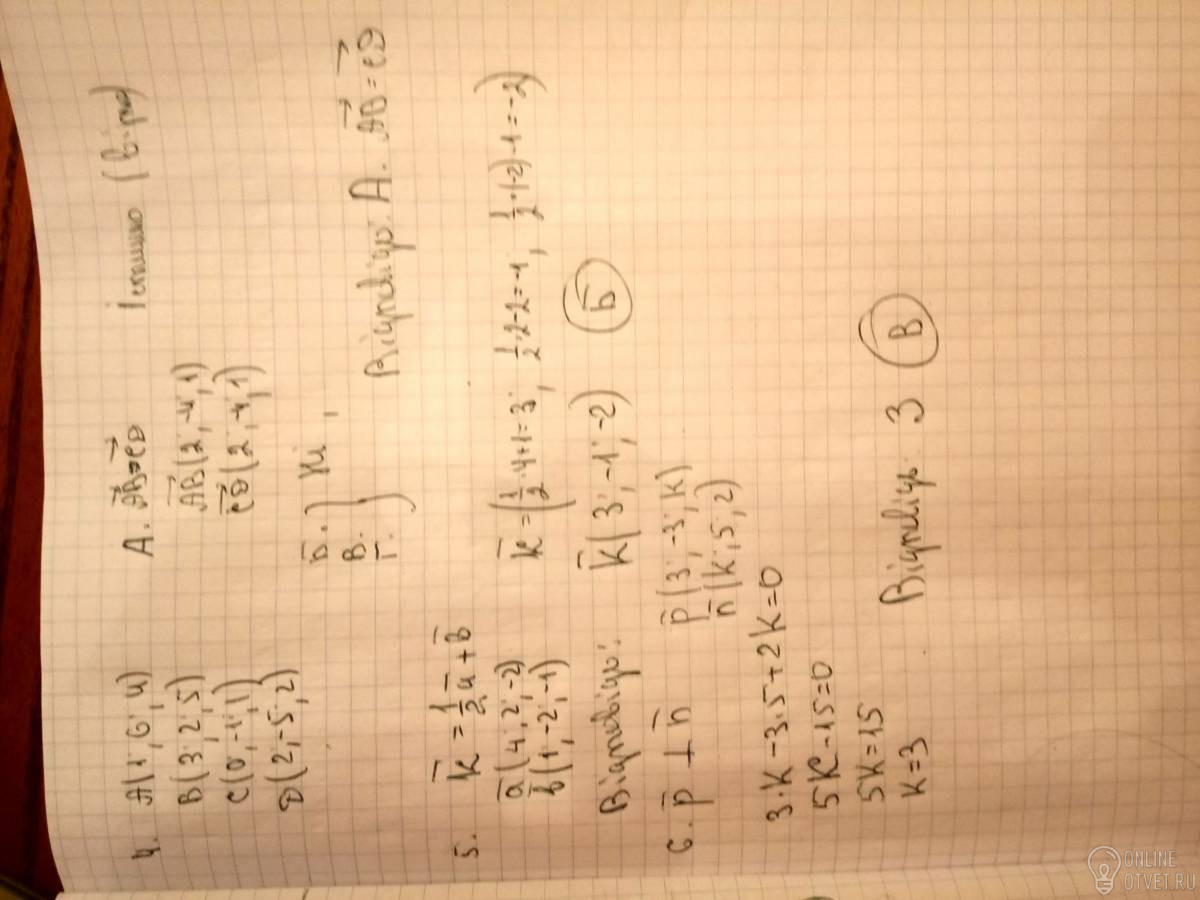 4. A(1; 6; 4) А. AB=CD істинно (вірно)
B(3; 2; 5) AB(2; -4; 1)
C(0; -1; 1) CD(2; -4; 1)
D(2; -5; 2) Б. В. Г. } Ні,
Відповідь: А. AB=CD
5. k = 1/2 a + b k = (1/2·4+1=3; 1/2·2-2=-1; 1/2·(-2)-1=-2)
a(4; 2; -2)
b(1; -2; -1)
Відповідь: k(3; -1; -2) Б
6. p ⊥ n p(3; -3; k)
n(k; 5; 2)
3·k-3·5+2k=0
5k-15=0
5k=15
k=3 Відповідь 3 В
ONLINE
OTVET.RU